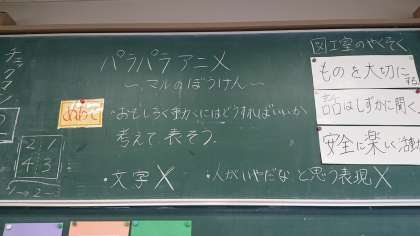 パラパラアニメ
〜マルのぼうけん〜
めあて
・おもしろく動かすにはどうすればいいか
考えて表そう。
・文字X
・人がいやだなと思う表現X
図工室のやくそく
ものを大切にする
話はしずかに聞く
安全に楽しく活動
2:1
4:3